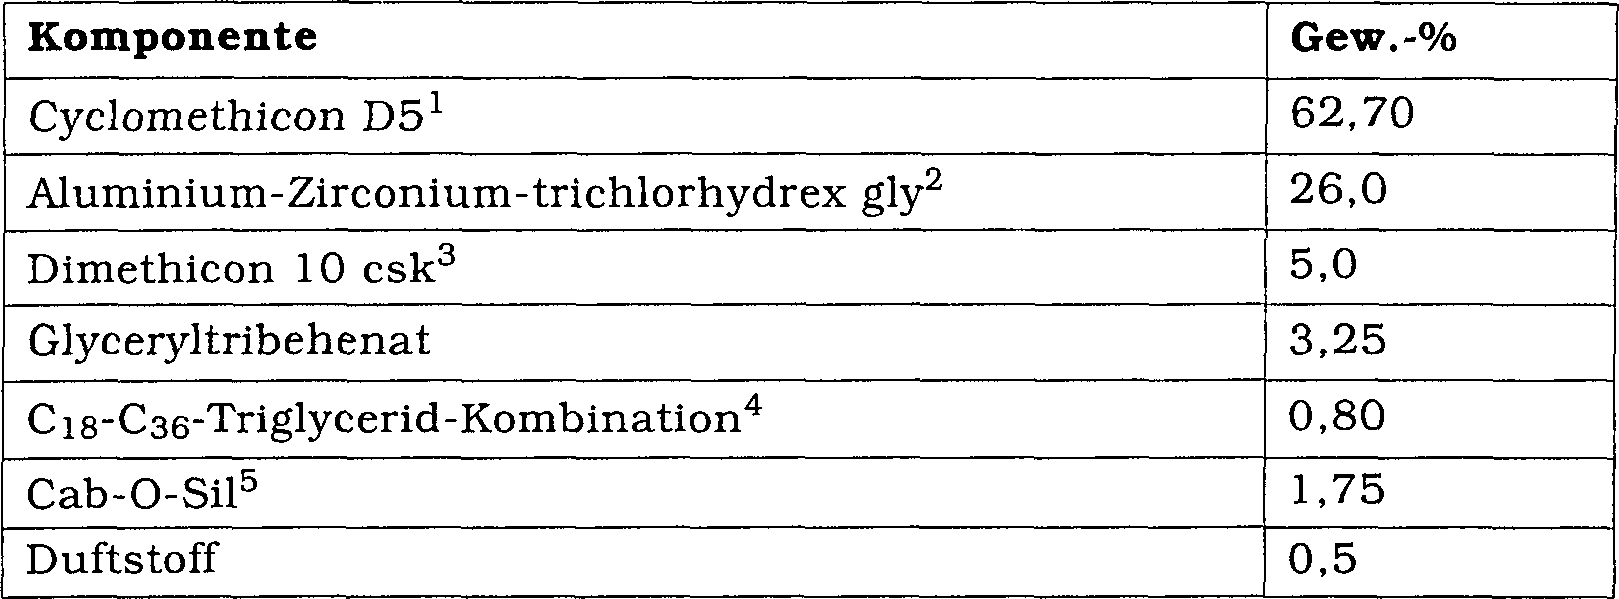 Komponente Gew.-%
Cyclomethicon D5¹ 62,70
Aluminium-Zirconium-trichlorhydrex gly² 26,0
Dimethicon 10 csk³ 5,0
Glyceryltribehenat 3,25
C₁₈-C₃₆-Triglycerid-Kombination⁴ 0,80
Cab-O-Sil⁵ 1,75
Duftstoff 0,5